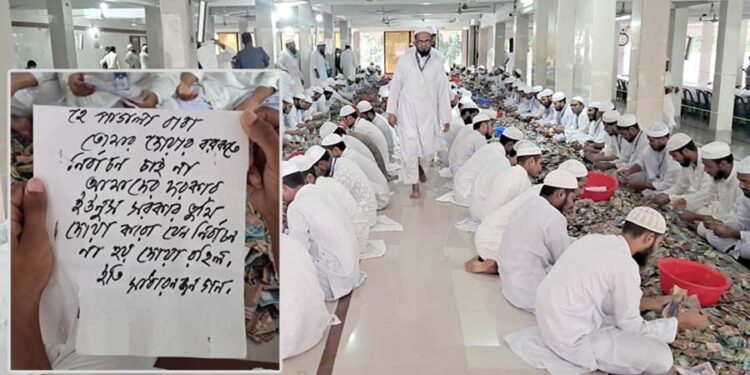 হে পাগলা বাবা
তোমার দোয়ার বরকতে
নির্বাচন চাই না
আমাদের দরকার
ইউনুস সরকার তুমি
দোয়া করো যেন নির্বাচন
না হয় দোয়া রহিল,
ইতি
সাধারন জনগন।